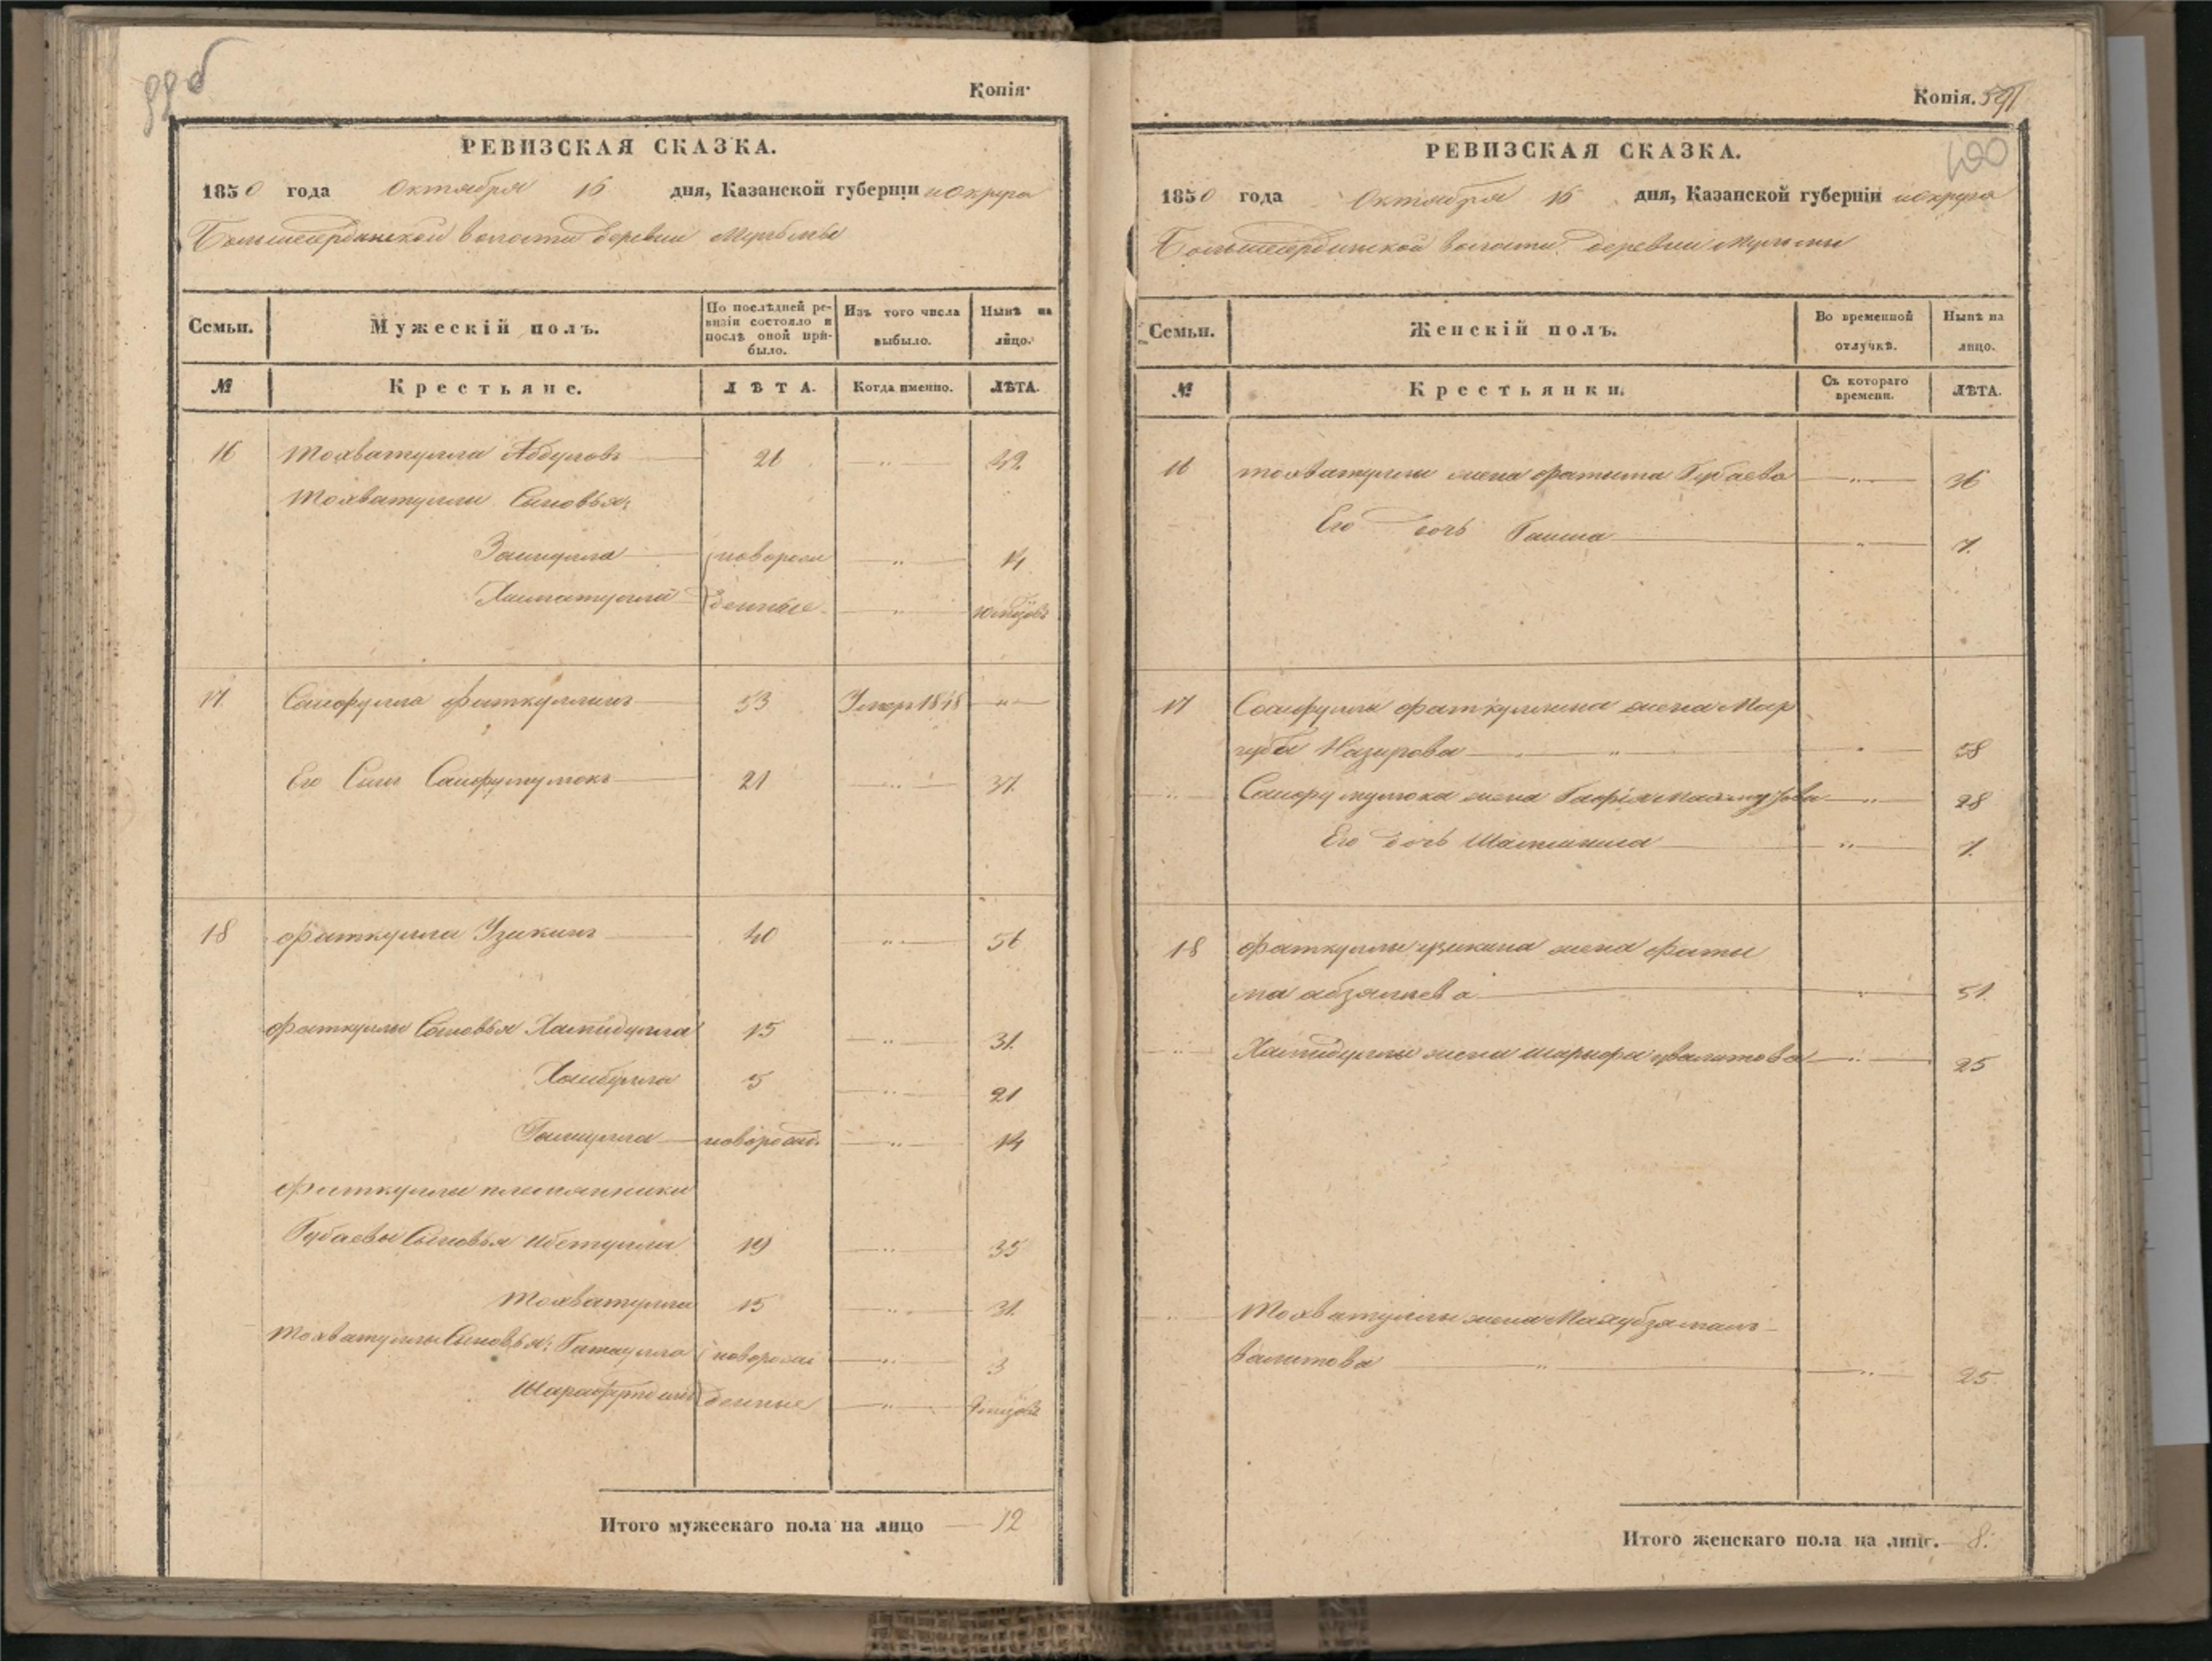 Копія.
РЕВИЗСКАЯ СКАЗКА.
1850 года Октября 16 дня, Казанской губерніи и округа
Большесердинской волости деревни Мульмы
Семьи.
Мужескій полъ.
По послѣдней ревизіи состояло и послѣ оной прибыло.
Изъ того числа выбыло.
Нынѣ на лицо.
№
Крестьяне.
ЛѢТА.
Когда именно.
ЛѢТА.
16 Мохватулла Абдуловъ 26 42
Мохватуллы Сыновья:
новорож 14
денные
17 Сайфулла Фаткуллинъ 53 Умер 1848
Его Сынъ Сайфулмулюкъ 21 37
18 Фаткулла Узикинъ 40 56
Фаткуллы Сыновья Хамидулла 15 31
Хабибулла 5 21
новорожд. 14
Фаткуллы племянники
Губаевы Сыновья 19 35
Мохватулла 15 31
Мохватуллы Сыновья: новорож 3
денные
Итого мужескаго пола на лицо 12
Копія. 591
400
РЕВИЗСКАЯ СКАЗКА.
1850 года Октября 16 дня, Казанской губерніи и округа
Большесердинской волости деревни Мульмы
Семьи.
Женскій полъ.
Во временной отлучкѣ.
Нынѣ на лицо.
№
Крестьянки.
Съ котораго времени.
ЛѢТА.
16 Мохватуллы жена Фатыма Губаева 36
Его дочь 7
17 Сайфуллы Фаткуллина жена Мар
губа Назирова 58
Сайфулмулюка жена 28
Его дочь 7
18 Фаткуллы Узикина жена Фаты
ма 51
Хамидуллы жена 25
Мохватуллы жена
Валитова 25
Итого женскаго пола на лицо. 8.